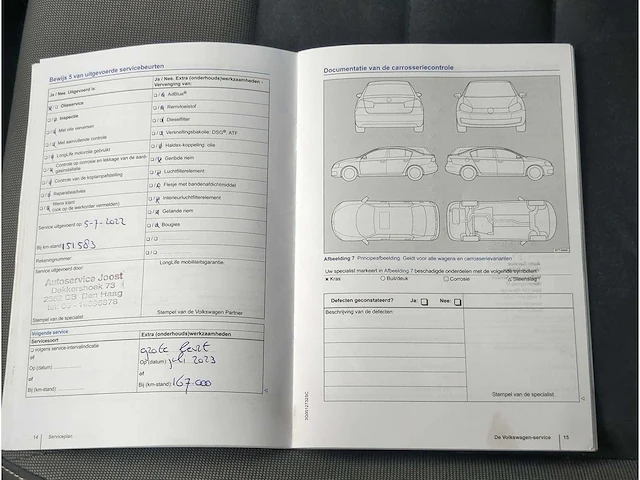 Bewijs 3 van uitgevoerde servicebeurten
Ja / Nee Uitgevoerd is:
Olieservice
Inspectie
Met olie verversen
Met aanvullende controle
LongLife motorolie gebruikt
Controle op corrosie en lekkage van de aard-
gasinstallatie
Controle van de koplampafstelling
Reparatieadvies
Wens klant
(ook op de werkorder vermelden)
Service uitgevoerd op: 5-7-2022
Bij km-stand: 151583
Rekeningnummer:
Service uitgevoerd door:
Autoservice Joost
Dekkershoek 73
Den Haag
Stempel van de specialist
Ja / Nee Extra (onderhouds)werkzaamheden -
Vervanging van:
AdBlue®
Remvloeistof
Dieselfilter
Versnellingsbakolie: DSG®, ATF
Haldex-koppeling: olie
Geribde riem
Luchtfilterelement
Flesje met bandenafdichtmiddel
Interieurluchtfilterelement
Getande riem
Bougies
LongLife mobiliteitsgarantie:
Stempel van de Volkswagen Partner
Volgende service
Servicesoort
volgens service-intervalindicatie
of
Op (datum):
of
Bij (km-stand):
Extra (onderhouds)werkzaamheden
grote beurt
Op (datum): juli 2023
of
Bij (km-stand): 167.000
14 Serviceplan
Documentatie van de carrosseriecontrole
Afbeelding 7 Principeafbeelding. Geldt voor alle wagens en carrosserievarianten
Uw specialist markeert in Afbeelding 7 beschadigde onderdelen met de volgende symbolen:
× Kras
Buil/deuk
Corrosie
Steenslag
Defecten geconstateerd? Ja: Nee:
Beschrijving van de defecten:
Stempel van de specialist
De Volkswagen-service 15